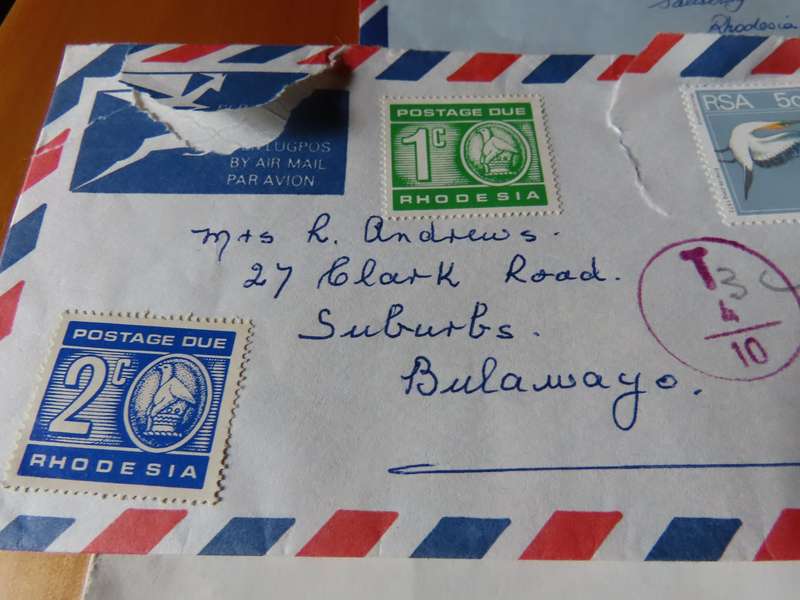 Rhodesia
POSTAGE DUE
1c
RHODESIA
RSA 5c
LUGPOS
BY AIR MAIL
PAR AVION
Mrs L. Andrews.
27 Clark Road.
Suburbs.
Bulawayo.
T 3c
4
10
POSTAGE DUE
2c
RHODESIA